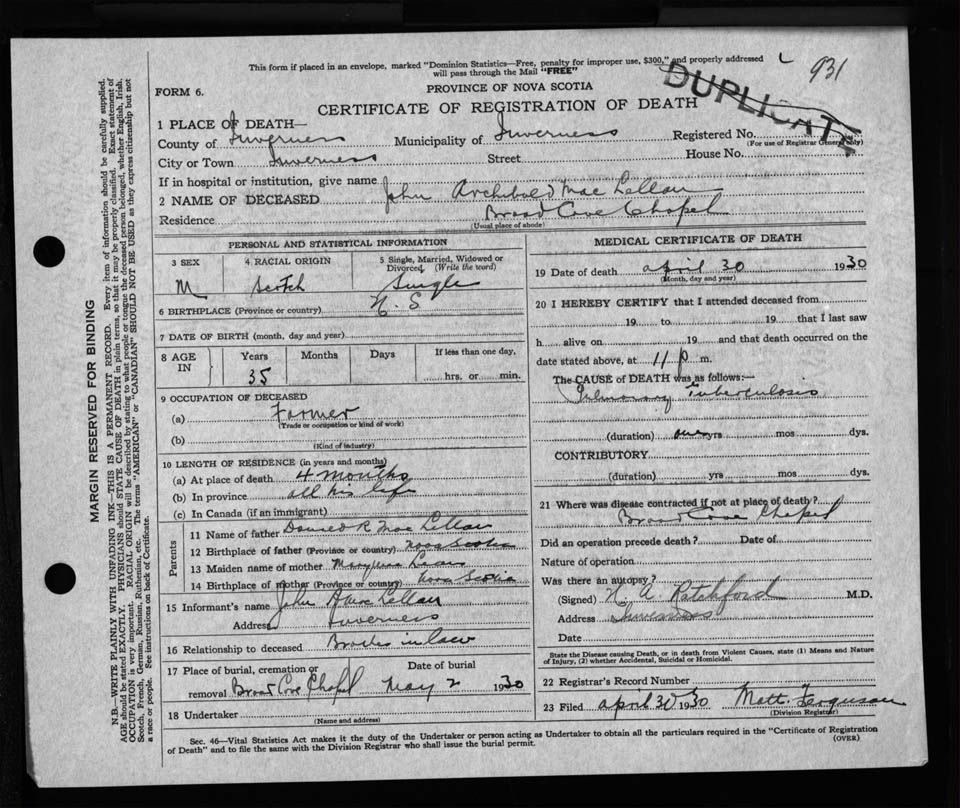 This form if placed in an envelope, marked "Dominion Statistics—Free, penalty for improper use, $300," and properly addressed
will pass through the Mail "FREE"
931
DUPLICATE
FORM 6.
PROVINCE OF NOVA SCOTIA
CERTIFICATE OF REGISTRATION OF DEATH
1 PLACE OF DEATH—
County of Inverness Municipality of Inverness Registered No.
(For use of Registrar General only)
City or Town Inverness Street House No.
If in hospital or institution, give name
2 NAME OF DECEASED John Archibald Mac Lellan
Residence Broad Cove Chapel
(Usual place of abode)
PERSONAL AND STATISTICAL INFORMATION
3 SEX 4 RACIAL ORIGIN 5 Single, Married, Widowed or Divorced, (Write the word)
M Scotch Single
6 BIRTHPLACE (Province or country) N. S.
7 DATE OF BIRTH (month, day and year)
8 AGE IN Years Months Days If less than one day,
35 hrs. or min.
9 OCCUPATION OF DECEASED
(a) Farmer
(Trade or occupation or kind of work)
(b)
(Kind of industry)
10 LENGTH OF RESIDENCE (in years and months)
(a) At place of death 4 months
(b) In province all his life
(c) In Canada (if an immigrant)
Parents
11 Name of father Donald R. Mac Lellan
12 Birthplace of father (Province or country) Nova Scotia
13 Maiden name of mother
14 Birthplace of mother (Province or country) Nova Scotia
15 Informant's name John Mac Lellan
Address Inverness
16 Relationship to deceased Brother in law
17 Place of burial, cremation or Date of burial
removal Broad Cove Chapel May 2 1930
18 Undertaker
(Name and address)
MEDICAL CERTIFICATE OF DEATH
19 Date of death april 30 1930
(Month, day and year)
20 I HEREBY CERTIFY that I attended deceased from
19 to 19 that I last saw
h alive on 19 and that death occurred on the
date stated above, at 11 p m.
The CAUSE of DEATH was as follows:—
Pulmonary Tuberculosis
(duration) one yrs mos dys.
CONTRIBUTORY
(duration) yrs mos dys.
21 Where was disease contracted if not at place of death?
Broad Cove Chapel
Did an operation precede death? Date of
Nature of operation
Was there an autopsy?
(Signed) H. A. Ratchford M.D.
Address Inverness
Date
State the Disease causing Death, or in death from Violent Causes, state (1) Means and Nature
of Injury, (2) whether Accidental, Suicidal or Homicidal.
22 Registrar's Record Number
23 Filed april 30 1930 Matt. Ferguson
(Division Registrar)
Sec. 46—Vital Statistics Act makes it the duty of the Undertaker or Person acting as Undertaker to obtain all the particulars required in the "Certificate of Registration
of Death" and to file the same with the Division Registrar who shall issue the burial permit.
(OVER)
MARGIN RESERVED FOR BINDING
N.B.—WRITE PLAINLY WITH UNFADING INK—THIS IS A PERMANENT RECORD. Every item of information should be carefully supplied.
AGE should be stated EXACTLY. PHYSICIANS should STATE CAUSE OF DEATH in plain terms, so that it may be properly classified. Exact statement of
OCCUPATION is very important. RACIAL ORIGIN will be described by stating to what people or tongue the deceased person belonged, whether English, Irish,
Scotch, French, German, Russian, Ruthenian, etc. The terms "AMERICAN" or "CANADIAN" SHOULD NOT BE USED as they express citizenship but not
a race or people. See instructions on back of Certificate.